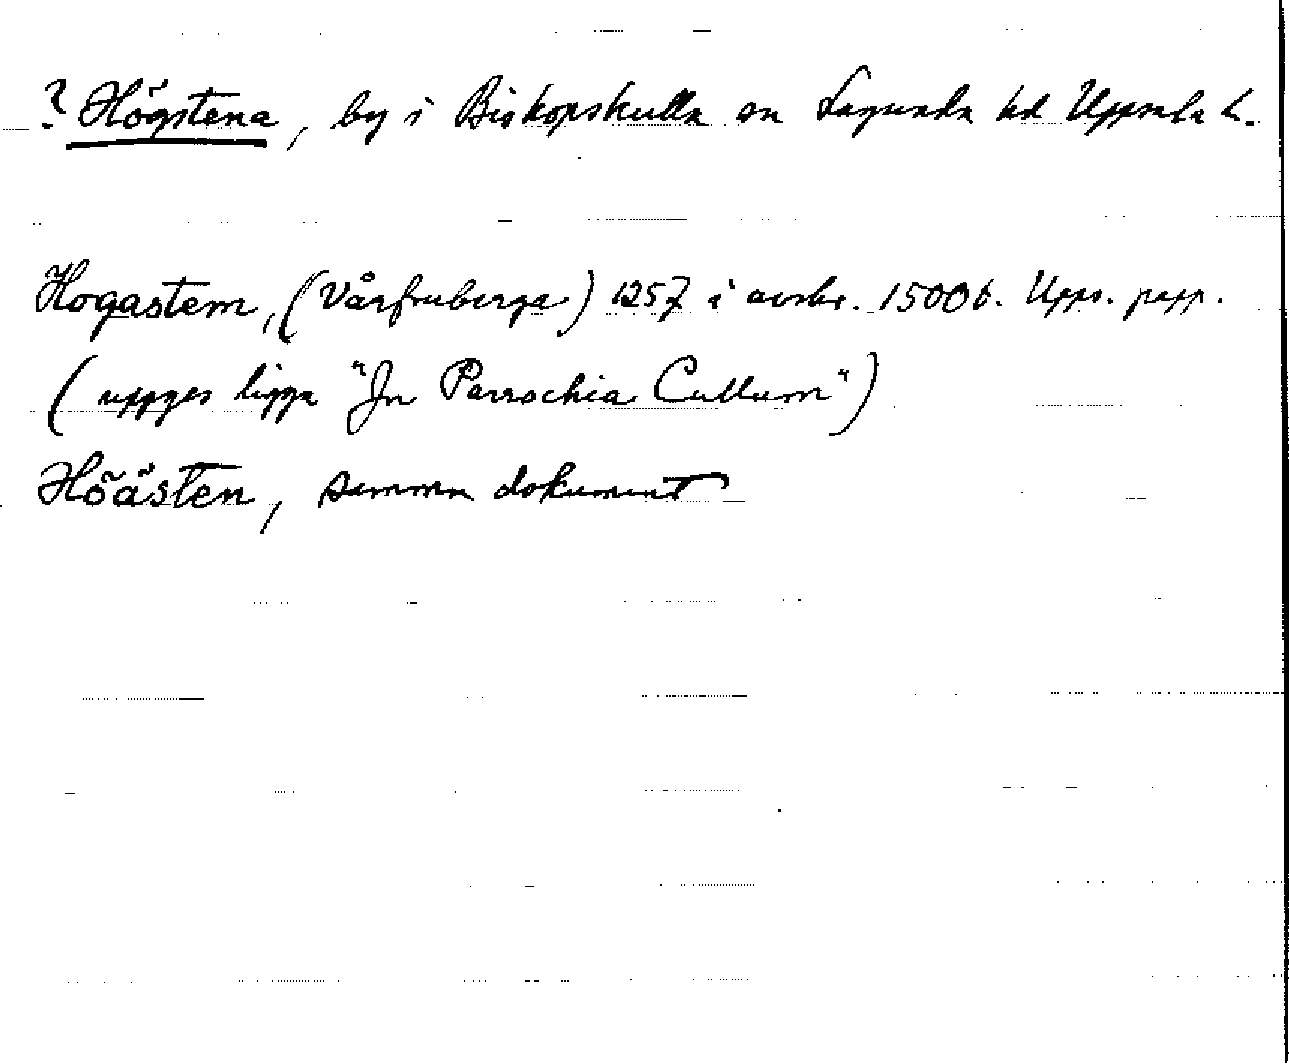 ? Högstena, by i Biskopskulla sn Lagunda hd Uppsala l.
Hogastem, (Vårfruberga) 1257 i avskr. 1500 b. Upps. papp.
( uppges ligga "In Parrochia Cullum")
Höästen, samma dokument